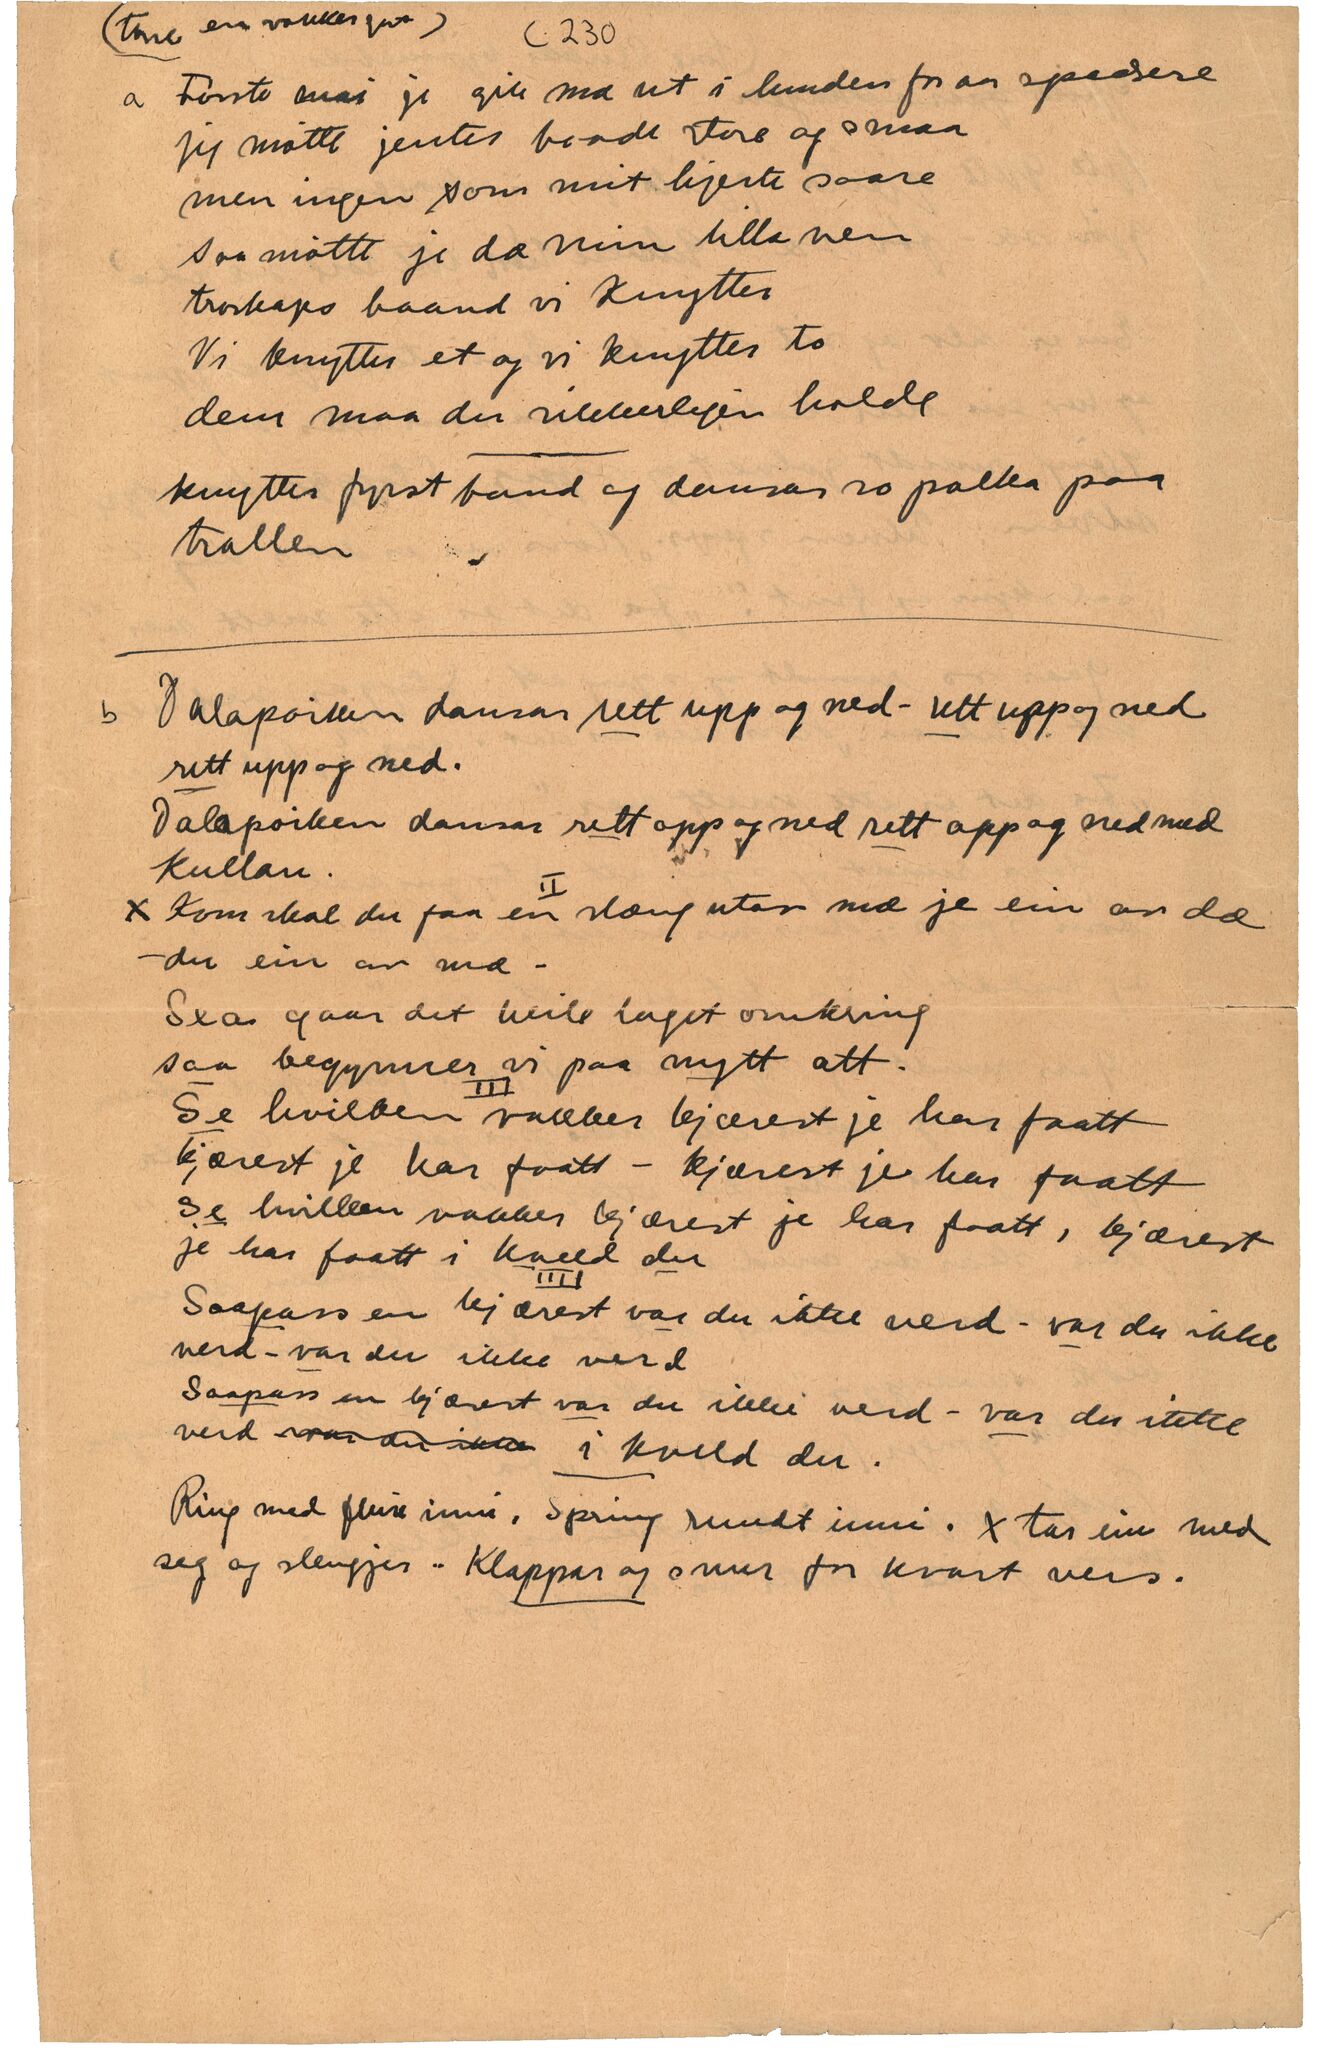 (Tone en vakker
C 230
a Første mai je gik mæ ut i lunden for aa spadsere
jeg møtte jenter baade store og smaa
men ingen som mit hjerte saare
saa møtte je da min lilla ven
troskaps baand vi knytter
Vi knytter et og vi knytter to
dem maa du sikkerligen holde
knytter fyrst band og dansar so polka paa
trallen
b Dalapoiken dansar rett upp og ned - rett upp og ned
rett upp og ned.
Dalapoiken dansar rett opp og ned rett opp og ned med
kullan.
II
x Kom skal du faa en slæng utav mæ je ein av dæ
- du ein av mæ -
Saa gaar det heile laget omkring
saa begynner vi paa nytt att.
III
Se hvilken vakker kjærest je har faatt
kjærest je har faatt - kjærest je har faatt
Se hvilken vakker kjærest je har faatt, kjærest
je har faatt i kveld du
IIII
Saapass en kjærest var du ikke verd - var du ikke
verd - var du ikke verd
Saapass en kjærest var du ikke verd - var du ikke
verd var du ikke i kveld du.
Ring med fleire inni. Spring rundt inni. x tar ein med
seg og slengjer - Klappar og snur for kvart vers.